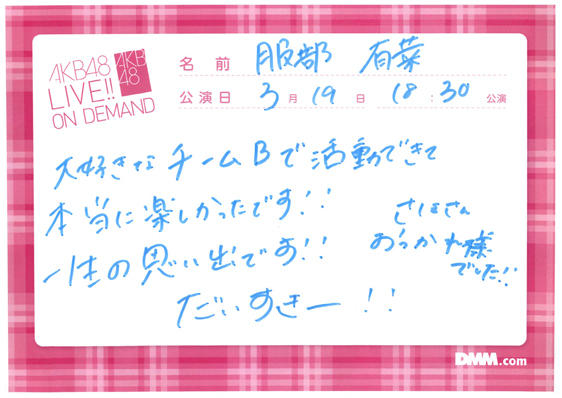 AKB48
LIVE!!
ON DEMAND
AKB
48
名前 服部 有菜
公演日 3月19日 18:30 公演
大好きなチームBで活動できて
本当に楽しかったです!!
一生の思い出です!!
だいすきー!!
さほさん
おつかれ様
でした!!
DMM.com